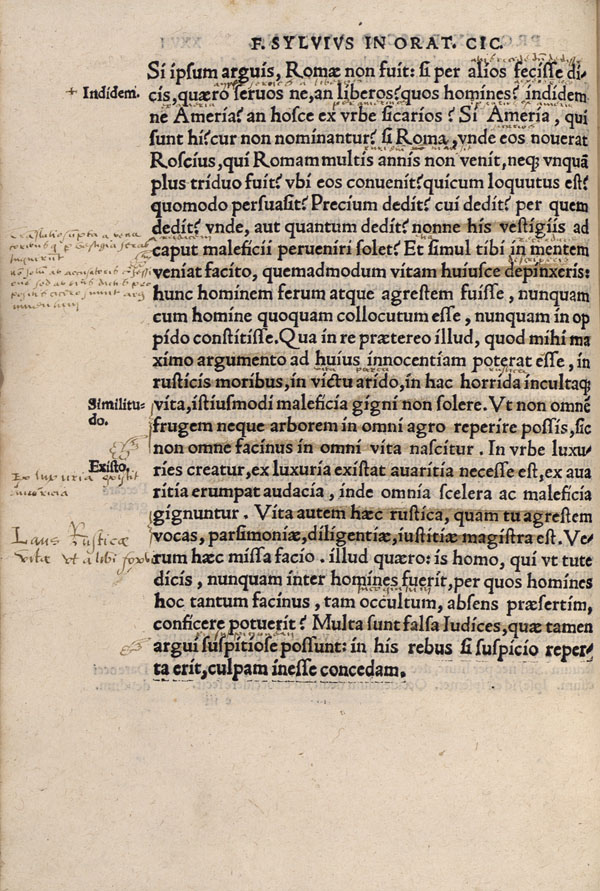 F. SYLVIUS IN ORAT. CIC.
Si ipsum arguis, Romæ non fuit: si per alios fecisse di-
+ Indidem.
cis, quæro seruos ne, an liberos? quos homines? indidem
ne Ameria? an hosce ex vrbe sicarios? Si Ameria, qui
sunt hi? cur non nominantur? si Roma, vnde eos nouerat
Roscius, qui Romam multis annis non venit, neq; vnquã
plus triduo fuit? vbi eos conuenit? quicum loquutus est?
quomodo persuasit? Precium dedit? cui dedit? per quem
dedit? vnde, aut quantum dedit? nonne his vestigiis ad
caput maleficii perueniri solet? Et simul tibi in mentem
veniat facito, quemadmodum vitam huiusce depinxeris:
hunc hominem ferum atque agrestem fuisse, nunquam
cum homine quoquam collocutum esse, nunquam in op
pido constitisse. Qua in re prætereo illud, quod mihi ma
ximo argumento ad huius innocentiam poterat esse, in
rusticis moribus, in victu arido, in hac horrida incultaq;
Similitu-
do.
vita, istiusmodi maleficia gigni non solere. Vt non omnẽ
frugem neque arborem in omni agro reperire possis, sic
non omne facinus in omni vita nascitur. In vrbe luxu-
Existo.
ries creatur, ex luxuria existat auaritia necesse est, ex aua
Ex luxuria existit
ritia erumpat audacia, inde omnia scelera ac maleficia
gignuntur. Vita autem hæc rustica, quam tu agrestem
Laus Rusticæ
vocas, parsimoniæ, diligentiæ, iustitiæ magistra est. Ve-
vitæ vt alibi
rum hæc missa facio. illud quæro: is homo, qui vt tute
dicis, nunquam inter homines fuerit, per quos homines
hoc tantum facinus, tam occultum, absens præsertim,
conficere potuerit? Multa sunt falsa Iudices, quæ tamen
argui suspitiose possunt: in his rebus si suspicio reper-
ta erit, culpam inesse concedam.